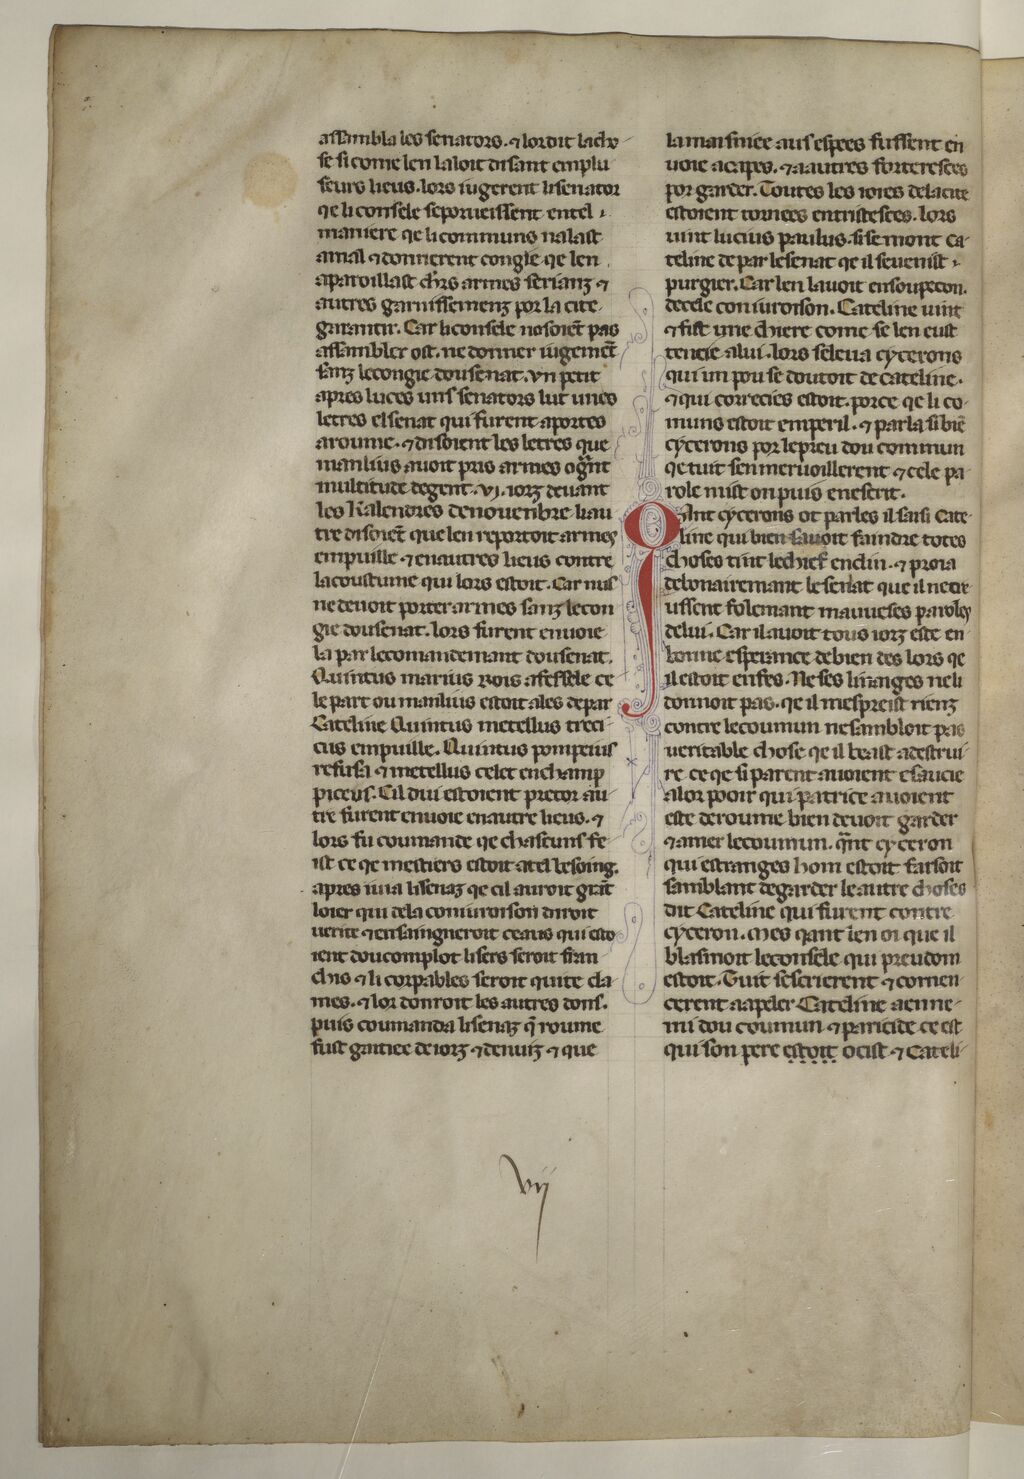 assambla les senators. ⁊ lor dit la cho
se si come len laloit disant em plu
seurs lieus. lors iugerent li senator
qe li consele se porueissent en tel
maniere qe li communs nalast
a mal ⁊ donnerent congie qe len
aparoillast chrs armes serianz ⁊
autres garnissemenz por la cite
garantir. Car li consele nosoiẽt pas
assambler ost. ne donner iugemẽt
sanz le congie dou senat. vn petit
apres luces uns senators lut unes
letres el senat qui furent aportes
a roume. ⁊ disoient les letres que
manlius auoit pris armes o grãt
multitude de gent. vj. iorz deuant
les kalendres de nouenbre li au
tre disoiẽt que len reportoit armes
em puille ⁊ en autres lieus contre
la coustume qui lors estoit. Car nus
ne deuoit porter armes sanz le con
gie dou senat. lors furent enuoie
la par le comandemant dou senat.
Quintus marius rois a fessele ce
le part ou manlius estoit ales de par
Cateline Quintus metellus treci
cus em puille. Quintus pompeius
refusa ⁊ metellus celet en champ
piceus. Cil dui estoient pretor au
tre furent enuoie en autre lieus. ⁊
lors fu coumande qe chascuns fe
ist ce qe mestiers estoit a tel besoing.
apres iura li senaz qe cil auroit grãt
loier qui de la coniuroison diroit
uerite ⁊ ensaingneroit ceaus qui esto
ient dou complot li sers seroit fran
chis ⁊ li corpables seroit quite cla
mes. ⁊ lor donroit les autres dons.
puis coumanda li senaz q̃ roume
fust gaitiee de iorz ⁊ de nuiz ⁊ que
la maisniee aus espees fussent en
uoie a capes. ⁊ a autres forteresces
por garder. Toutes les ioies de la cite
estoient tornees en tristesces. lors
uint lucius paulus. si semont ca
teline de par le senat qe il se uenist
purgier. Car len lauoit en soupecon.
de cele coniuroison. Cateline uint
⁊ fist une chiere come se len eust
tencie a lui. lors se leua cycerons
qui un pou se doutoit de cateline.
⁊ qui correcies estoit. por ce qe li co
muns estoit em peril. ⁊ parla si biẽ
cycerons por le preu dou commun
qe tuit sen meruoillerent ⁊ cele pa
role mist on puis en escrit.
Qant cycerons ot parle il sasi cate
line qui bien sauoit faindre totes
choses tint le chief enclin. ⁊ proia
debonairemant le senat que il ne cre
ussent folemant mauueses paroles
de lui. Car il auoit tous iorz este en
bonne esperance de bien des lors qe
il estoit enfes. Ne ses linanges ne li
donnoit pas. qe il mespreist rienz
contre le coumun ne sambloit pas
ueritable chose qe il beast a destrui
re ce qe si parent auoient esaucie
a lor pooir qui patrice auoient
este de roume bien deuoit garder
⁊ amer le coumun. qãnt cyceron
qui estranges hom estoit faisoit
samblant de garder le autre choses
dit Cateline qui furent contre
cyceron. Mes qant len oi que il
blasmoit le consele qui preudom
estoit. Tuit sescrierent ⁊ comen
cerent a apeler Cateline a enne
mi dou coumun ⁊ paricide ce est
qui son pere estoit ocist ⁊ Cateli
vij